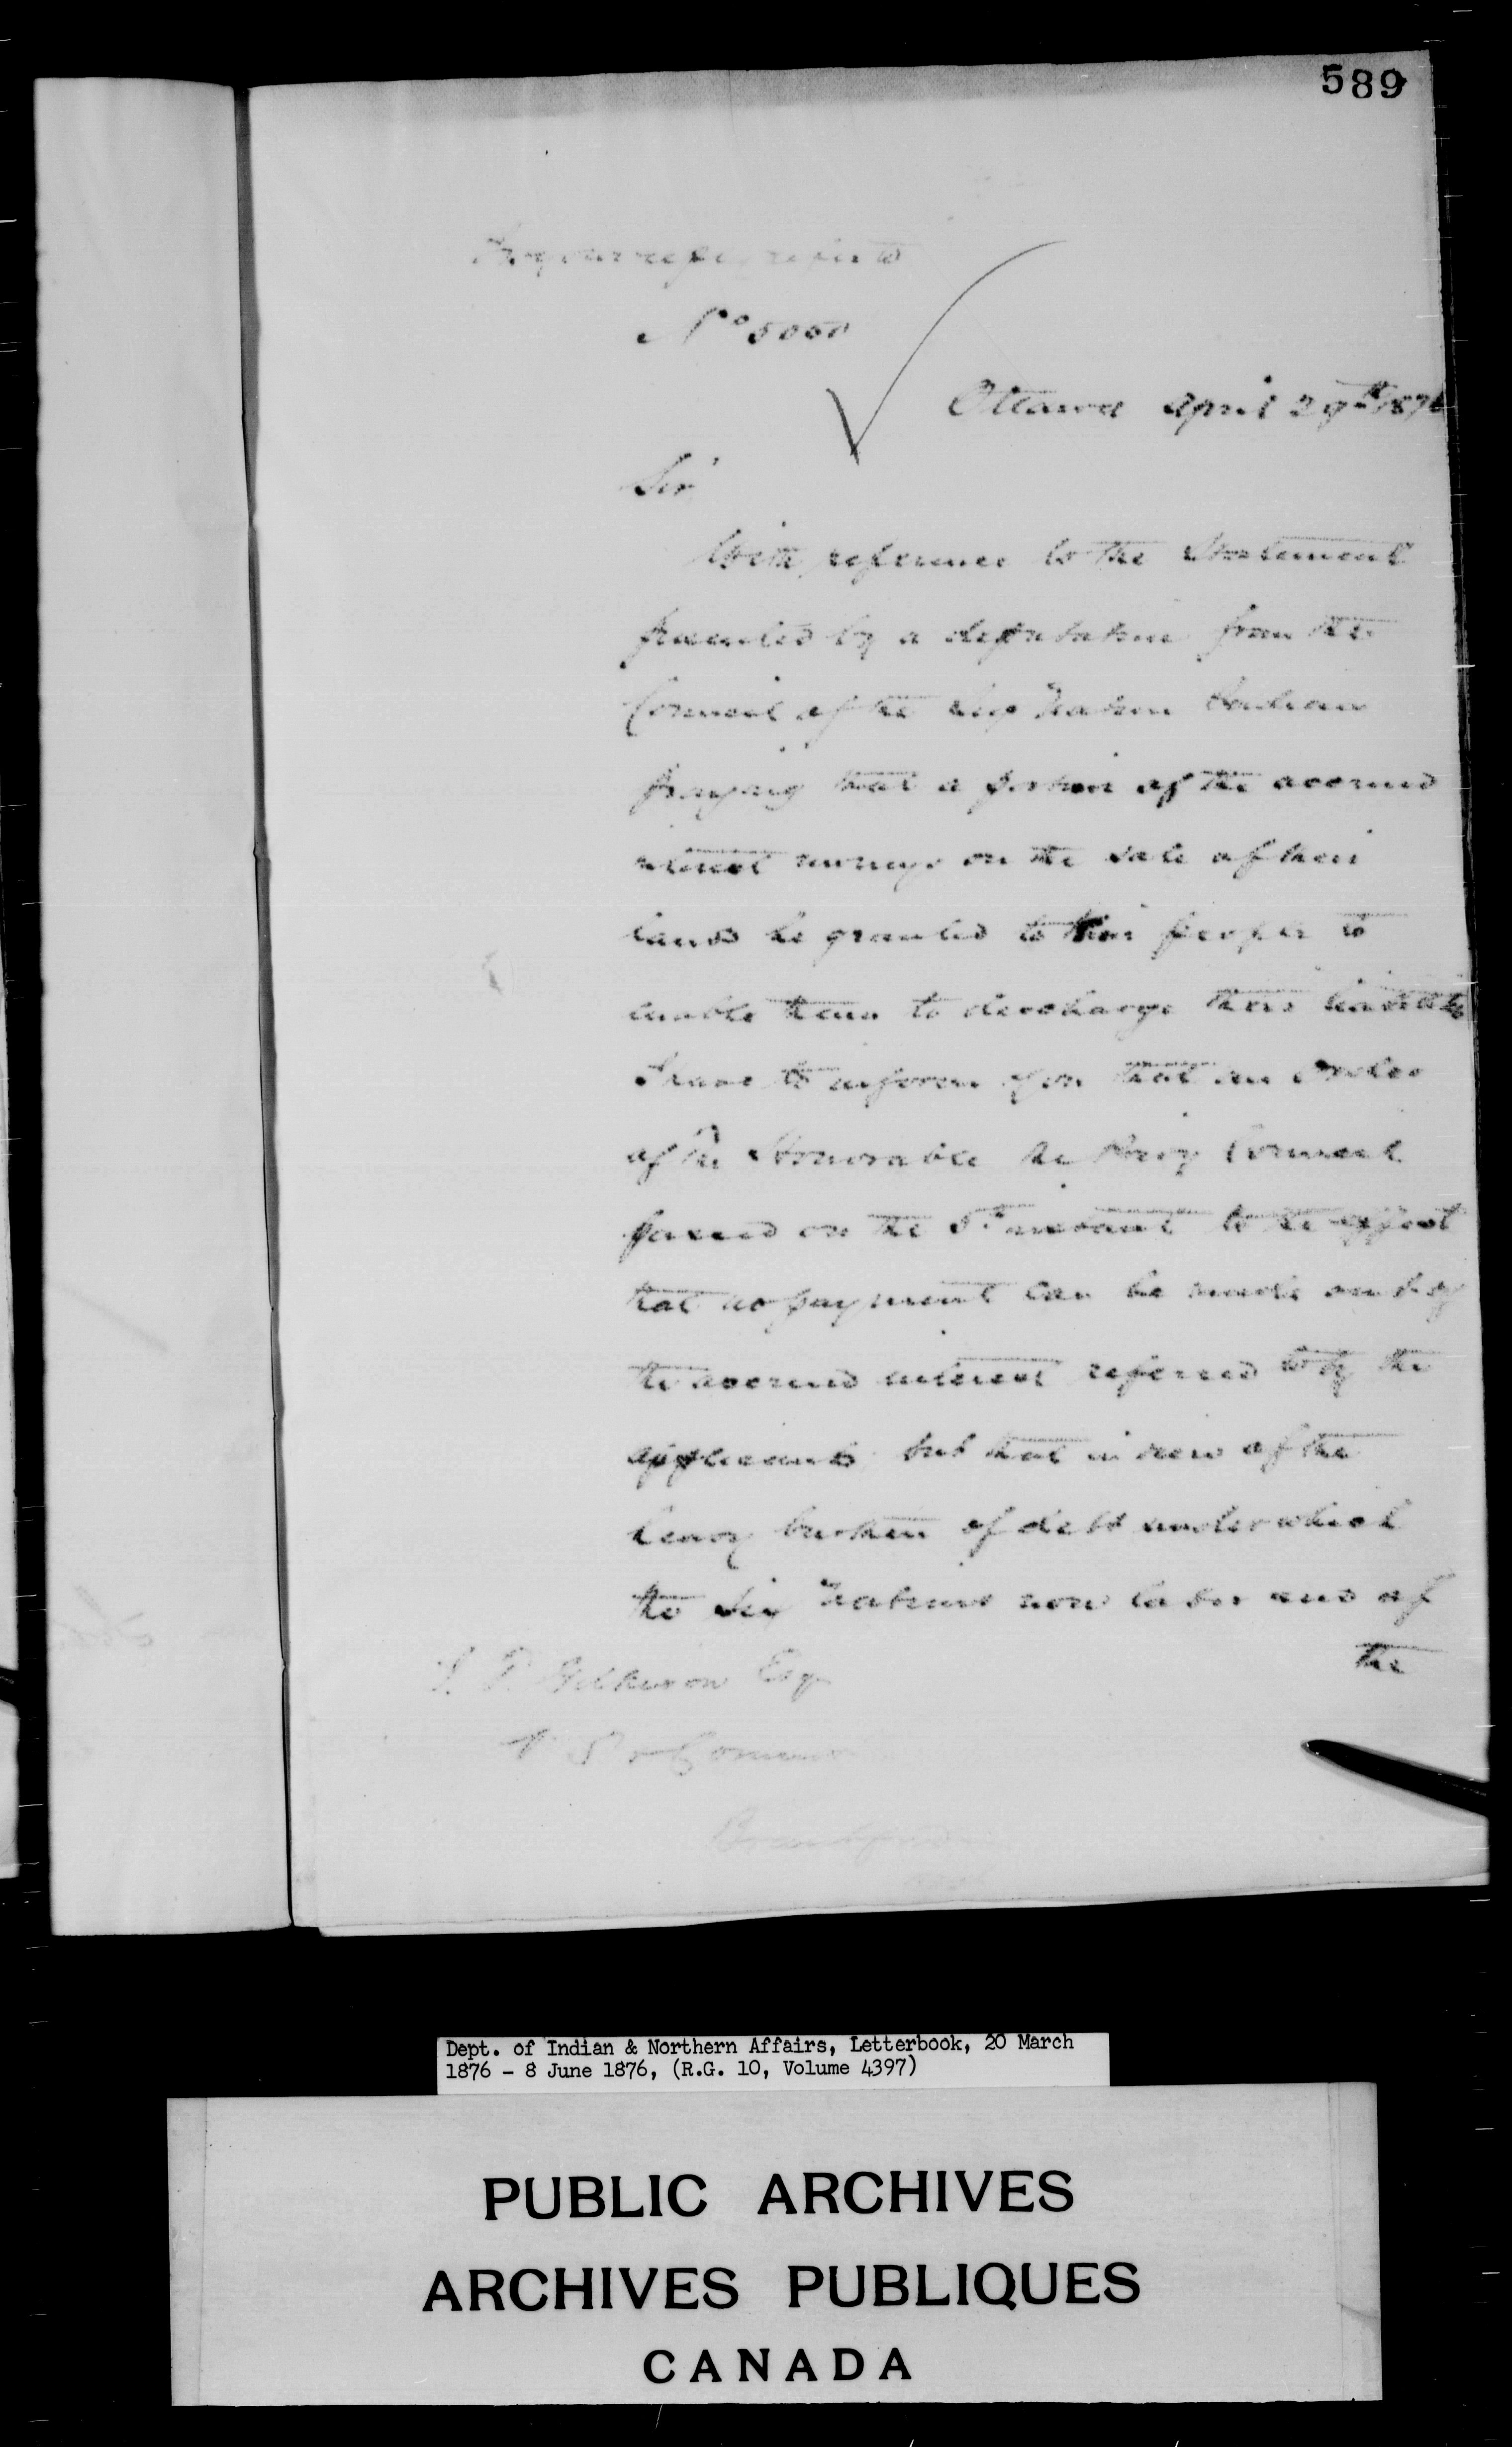 589
In your reply refer to
No 5050
Ottawa April 29th 1876
Sir
With reference to the Statement
presented by a deputation from the
Council of the Six Nation Indians
praying that a portion of the accrued
interest moneys on the sale of their
lands be granted to their people to
enable them to discharge their liabilities
I have to inform you that an Order
of the Honorable the Privy Council
passed on the instant to the effect
that no payment can be made out of
the accrued interest referred to by the
applicants but that in view of the
heavy burthen of debt under which
the Six Nations now labor and of
the
J. T. Gilkison Esq
V. S. & Commr
Brantford
Dept. of Indian & Northern Affairs, Letterbook, 20 March
1876 - 8 June 1876, (R.G. 10, Volume 4397)
PUBLIC ARCHIVES
ARCHIVES PUBLIQUES
CANADA